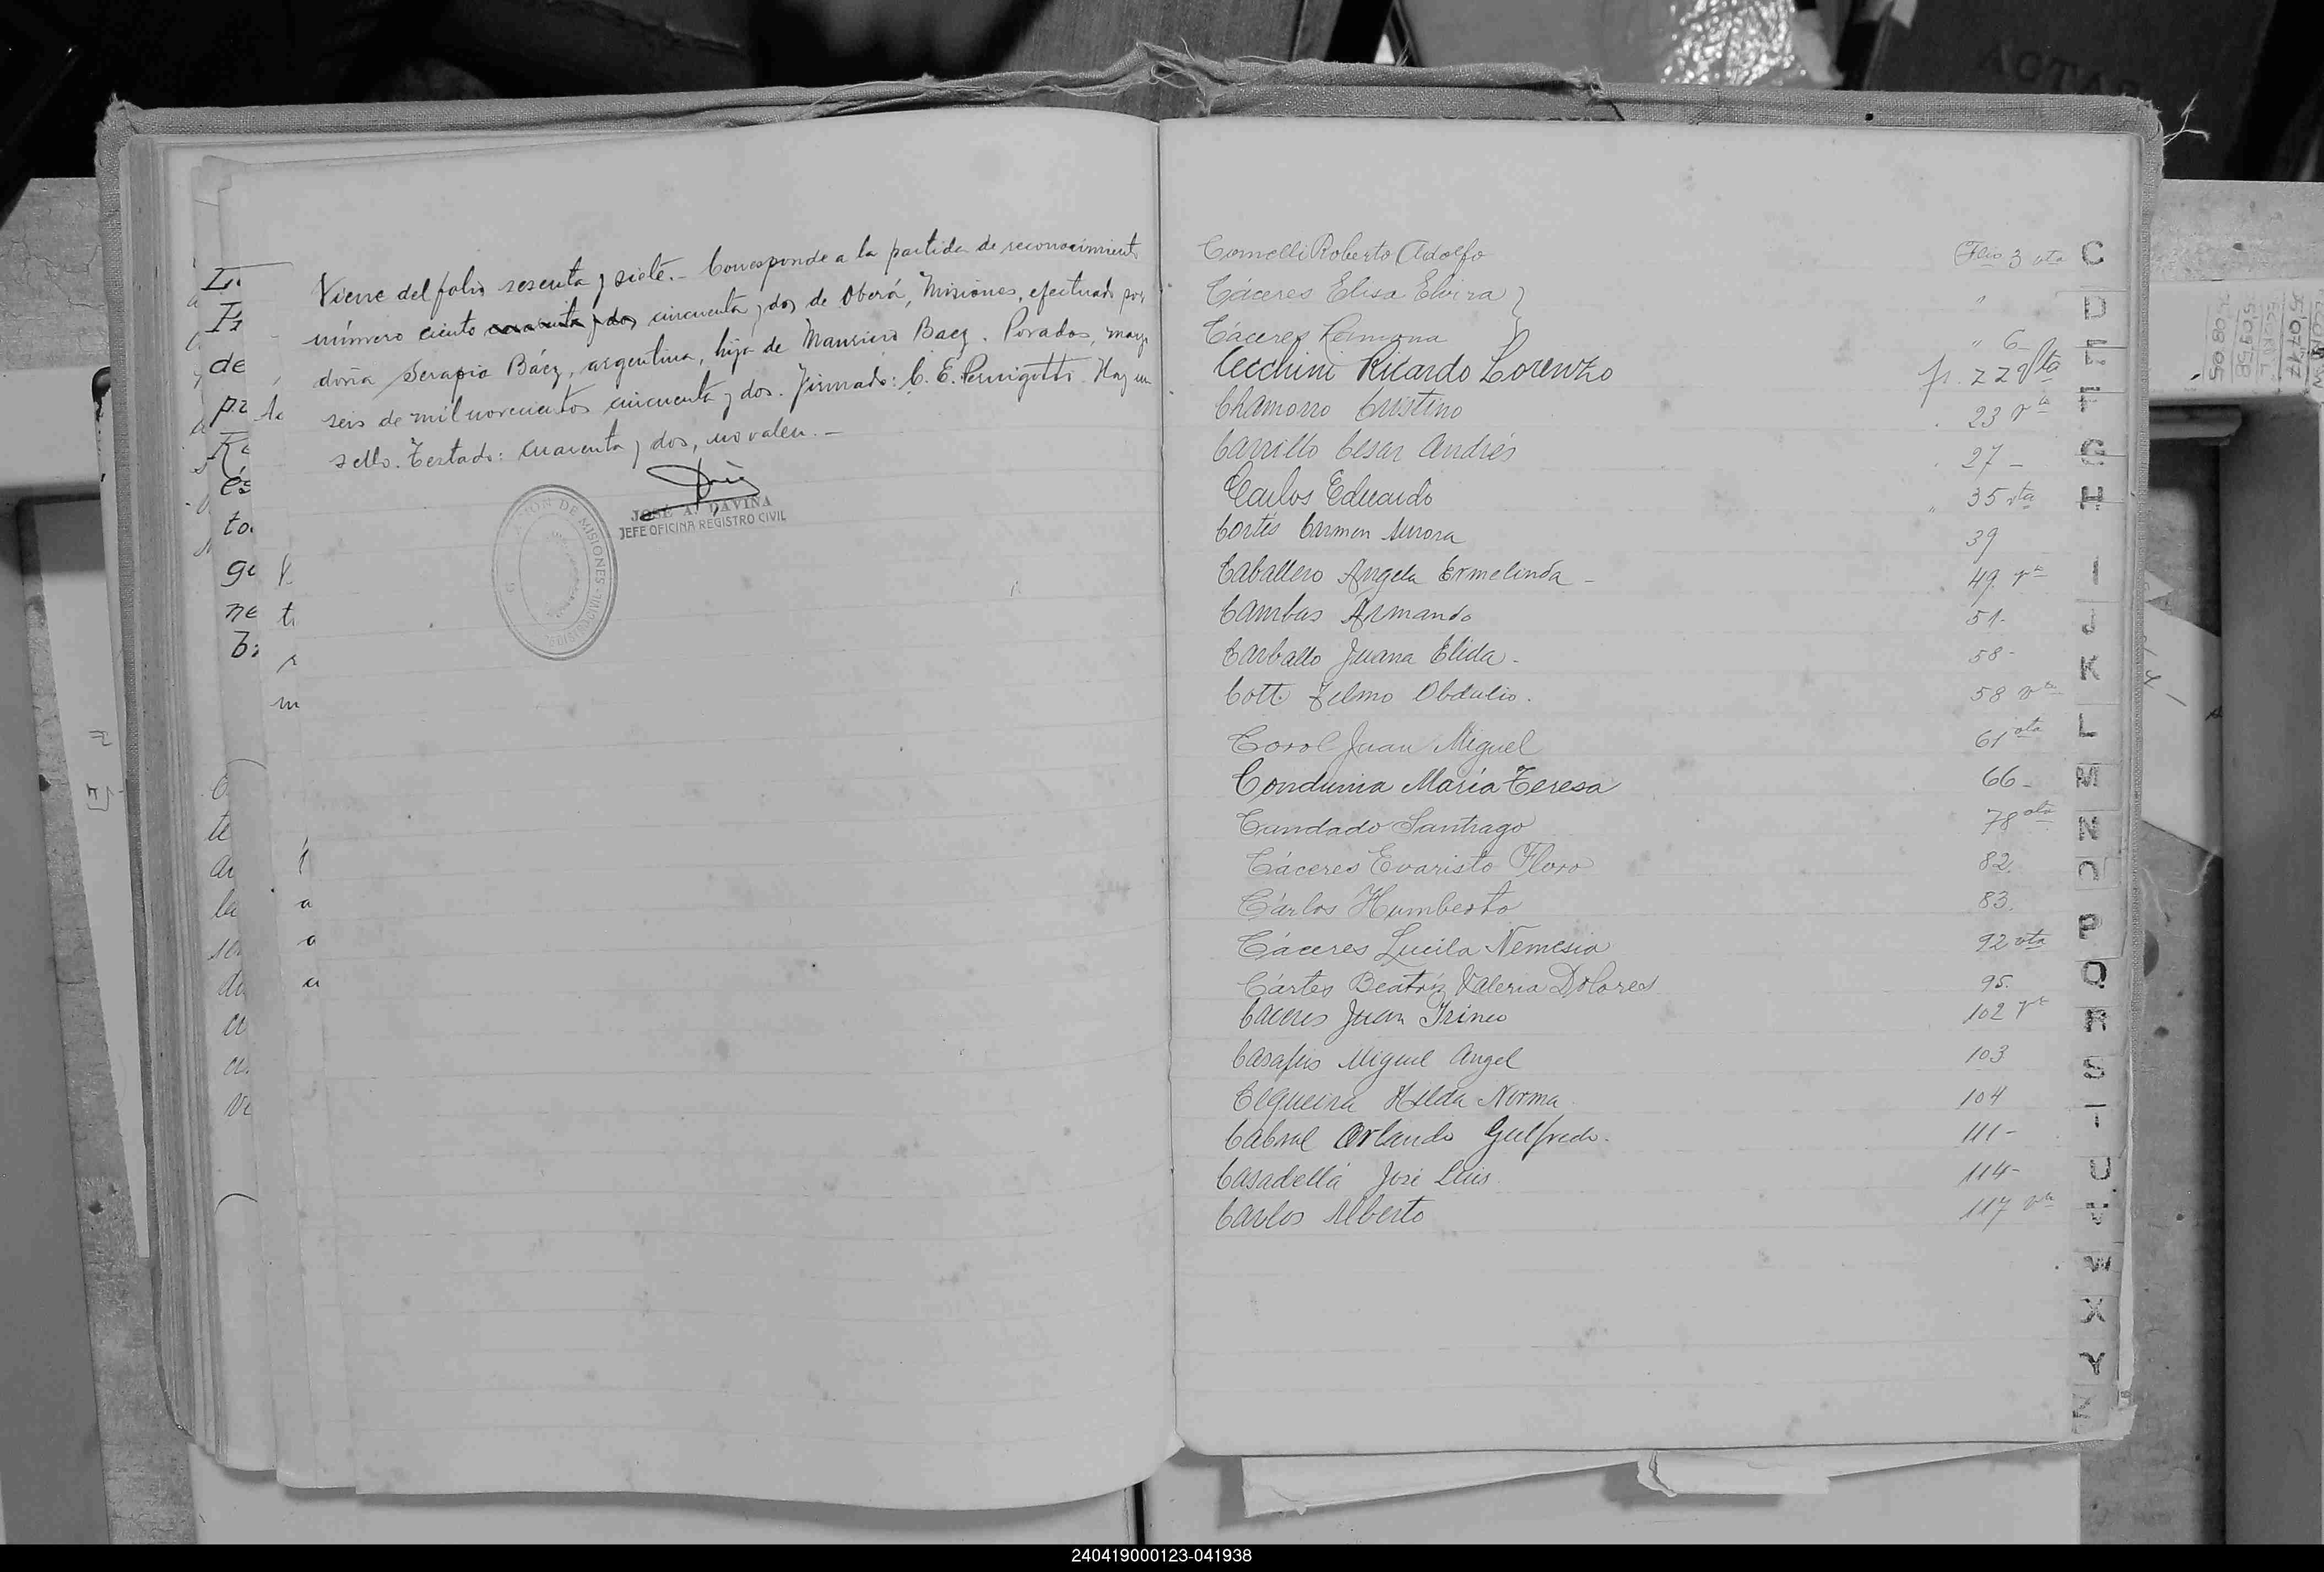 Viene del folio sesenta y siete.- Corresponde a la partida de reconocimiento
número ciento cuarenta y dos cincuenta y dos de Oberá, Misiones, efectuado por
doña Serapia Báez, argentina, hija de Mauricio Baez. Posadas, mayo
seis de mil novecientos cincuenta y dos. Firmado: C. E. Pernigotti. Hay un
sello. Testado: cuarenta y dos, no valen.-
JOSÉ A. DAVIÑA
JEFE OFICINA REGISTRO CIVIL
Comelli Roberto Adolfo Flio 3 vta
Cáceres Elisa Elvira } "
Cáceres Ramona " 6-
Cecchini Ricardo Lorenzo fº. 22 Vta
Chamorro Cristino 23 vta
Carrillo Cesar Andrés 27 -
Carlos Eduardo 35 vta
Cortés Carmen Aurora 39
Caballero Angela Ermelinda - 49 vta
Cambas Armando 51.
Carballo Juana Elida - 58 -
Cott Telmo Obdulio. 58 vta
Corol Juan Miguel 61 vta
Condurina María Teresa 66-
Cundado Santiago 78 vta
Cáceres Evaristo Floro 82.
Cárlos Humberto 83.
Cáceres Lucila Nemesia 92 vta
Cártes Beatríz Valeria Dolores 95.
Caceres Juan Irineo 102 vta
Miguel Angel 103
Hilda Norma 104
Cabral Orlando Gulfredo. 111-
Casadellá José Luis 114-
Carlos Alberto 117 vta
C
D
E
F
G
H
I
J
K
L
M
N
O
P
Q
R
S
T
U
V
W
X
Y
Z
240419000123-041938